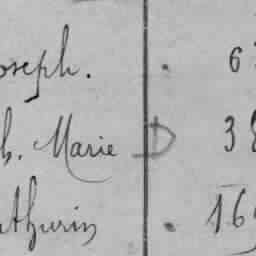 oseph. . 6
h. Marie D 38
athurin . 169